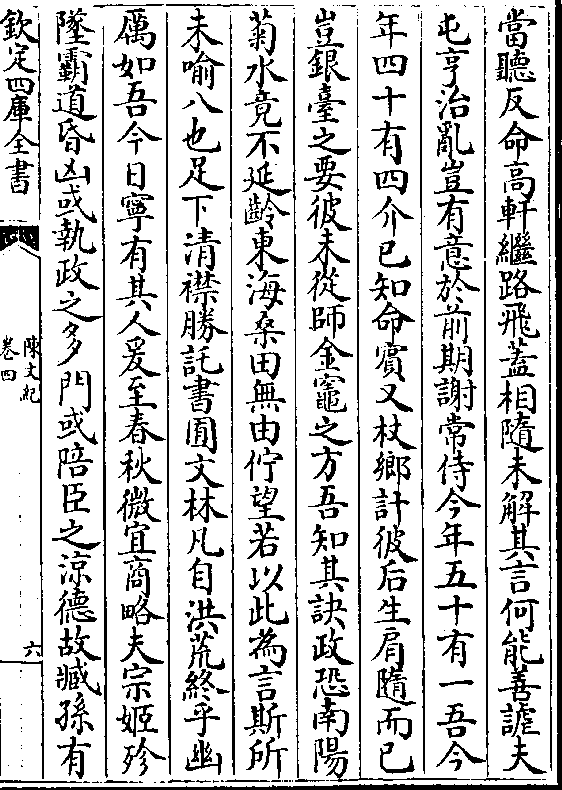 當聽反命高軒繼路飛蓋相隨未解其言何能善謔夫
屯亨治亂豈有意於前期謝常侍今年五十有一吾今
年四十有四介已知命賓又杖鄉計彼后生肩隨而已
豈銀臺之要彼未從師金竈之方吾知其訣政恐南陽
菊水竟不延齡東海桑田無由佇望若以此為言斯所
未喻八也足下清襟勝託書囿文林凡自洪荒終乎幽
厲如吾今日寧有其人爰至春秋微宜商略夫宗姬殄
墜霸道昏凶或執政之多門或陪臣之涼德故臧孫有
欽定四庫全書
陳文紀
卷四
六